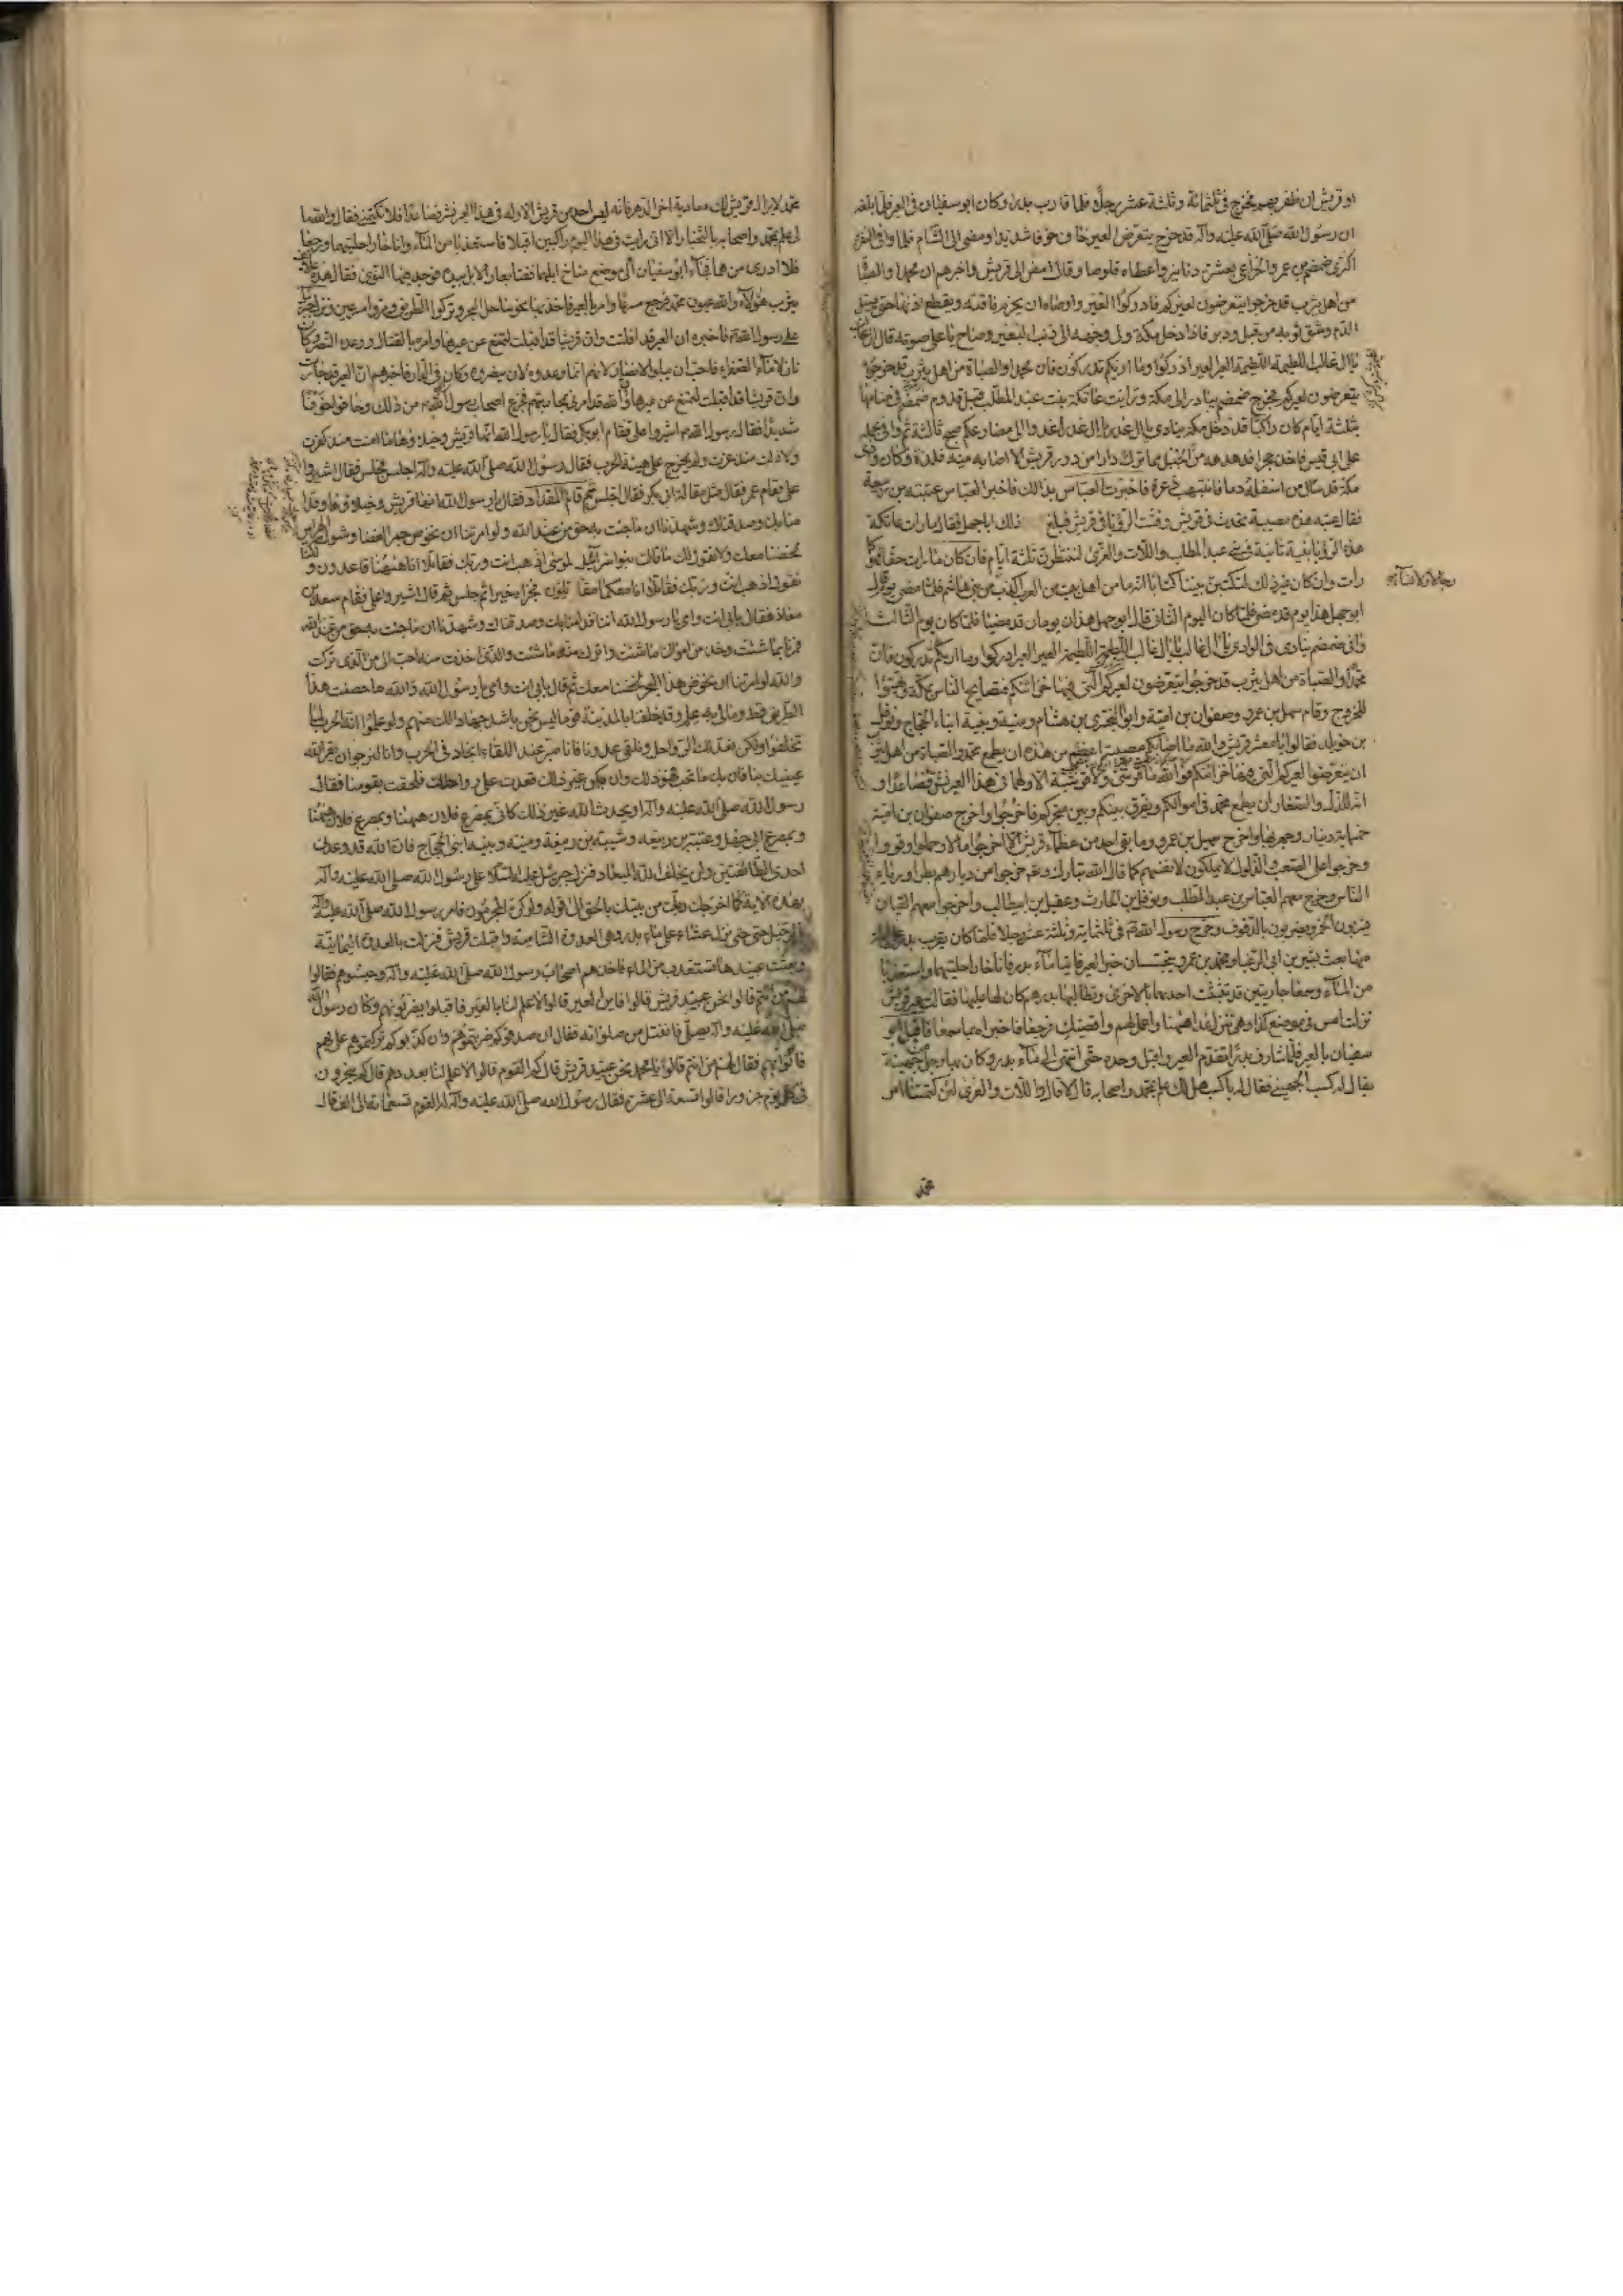 او قريش ان ظفر بهم فخرج في ثلثمائة وثلثة عشر رجلا فلما قارب بدرا وكان ابو سفيان في العير فلما بلغه
ان رسول الله صلى الله عليه وآله قد خرج يتعرض العير خاف خوفا شديدا ومضى الى الشام فلما وافى
اكترى ضمضم بن عمرو الخزاعي بعشرة دنانير واعطاه قلوصا وقال امض الى قريش واخبرهم ان محمدا والصباة
من اهل يثرب قد خرجوا يتعرضون لعيركم فادركوا العير واوصاه ان يخرم ناقته ويقطع اذنها حتى يسيل
الدم ويشق ثوبه من قبل ودبر فاذا دخل مكة ولى وجهه الى ذنب البعير وصاح باعلى صوته قال
يا آل غالب اللطيمة اللطيمة العير العير ادركوا وما اريكم تدركون فان محمدا والصباة من اهل يثرب قد خرجوا
يتعرضون لعيركم فخرج ضمضم يبادر الى مكة ورأيت عاتكة بنت عبد المطلب قبل قدوم ضمضم في منامها
بثلثة ايام كان راكبا قد دخل مكة ينادي يا آل غدر يا آل غدر اغدوا الى مصارعكم صبح ثالثة ثم وافى بجمله
على ابي قبيس فاخذ حجرا فدهدهه من الجبل فما ترك دارا من دور قريش الا اصابه منه فلذة وكان وادي
مكة قد سال من اسفله دما فانتبهت ذعرة فاخبرت العباس بذلك فاخبر العباس عتبة بن ربيعة
فقال عتبة هذه مصيبة تحدث في قريش وفشت الرؤيا في قريش فبلغ ذلك ابا جهل فقال ما رأت عاتكة
هذه الرؤيا نبية ثانية في بني عبد المطلب واللات والعزى لننتظرن ثلثة ايام فان كان ما رأت حقا فهو كما
رأت وان كان غير ذلك لنكتبن بيننا كتابا انه ما من اهل بيت من العرب اكذب من بني هاشم فلما مضى يوم قال
ابو جهل هذا يوم قد مضى فلما كان اليوم الثاني قال ابو جهل هذان يومان قد مضيا فلما كان يوم الثالث
وافى ضمضم ينادي في الوادي يا آل غالب يا آل غالب اللطيمة اللطيمة العير العير ادركوا وما اريكم تدركون فان
محمدا والصباة من اهل يثرب قد خرجوا يتعرضون لعيركم التي فيها خزائنكم فتصايح الناس بمكة وتهيئوا
للخروج وقام سهيل بن عمرو وصفوان بن امية وابو البختري بن هشام ومنبه ونبيه ابناء الحجاج ونوفل
بن خويلد فقالوا يا معشر قريش والله ما اصابكم مصيبة اعظم من هذه ان يطمع محمد والصباة من اهل يثرب
ان يتعرضوا لعيركم التي فيها خزائنكم فوالله ما قرشي ولا قرشية الا ولها في هذا العير نش فصاعدا و
انه للذل والصغار ان يطمع محمد في اموالكم ويفرق بينكم وبين متجركم فاخرجوا واخرج صفوان بن امية
خمسمائة دينار وجهز بها واخرج سهيل بن عمرو وما بقي احد من عظماء قريش الا اخرجوا مالا وحملوا وقووا
وخرجوا على الصعب والذلول لا يملكون لانفسهم كما قال الله تبارك وتعالى خرجوا من ديارهم بطرا ورياء
الناس وخرج معهم العباس بن عبد المطلب ونوفل بن الحارث وعقيل بن ابيطالب واخرجوا معهم القيان
يشربون الخمر ويضربون بالدفوف وخرج رسول الله ص في ثلثمائة وثلثة عشر رجلا فلما كان بقرب بدر
منها بعث بشير بن ابي الرعباء ومحمد بن عمرو يتجسسان خبر العير فاتيا ماء بدر فاناخا راحلتيهما واستعذبا
من الماء وسمعا جاريتين قد تشبثت احديهما بالاخرى وتطالبها بدرهم كان لها عليها فقالت عير قريش
نزلت امس في موضع كذا وهي تنزل غدا ههنا واعمل لهم واقضيك فرجعا فاخبراه بما سمعا فاقبل ابو
سفيان بالعير فلما شارف بدرا تقدم العير واقبل وحده حتى انتهى الى ماء بدر وكان بها رجل من جهينة
يقال له كسب الجهني فقال له يا كسب هل لك علم بمحمد واصحابه قال لا قال واللات والعزى لئن كتمتنا امر
محمد
محمد لا يزال قريش لك معادية اخر الدهر فانه ليس احد من قريش الا وله في هذا العير نش فصاعدا فلا تكتمني فقال والله ما
لي علم بمحمد واصحابه بالتجار الا اني رأيت في هذا اليوم راكبين اقبلا فاستعذبا من الماء واناخا راحلتيهما ورجعا
فلا ادري من هما فجاء ابو سفيان الى موضع مناخ ابلهما ففت ابعار الابل بيده فوجد فيها النوى فقال هذه علائف
يثرب هؤلاء والله عيون محمد فرجع مسرعا وامر بالعير فاخذ بها نحو ساحل البحر وتركوا الطريق ومروا مسرعين ونزل جبرئيل
على رسول الله ص فاخبره ان العير قد افلتت وان قريشا قد اقبلت لتمنع عن عيرها وامره بالقتال ووعده النصر وكان
نازلا ماء الصفراء فاحب ان يبلو الانصار لانهم انما وعدوه لان ينصروه وكان في الدار فاخبرهم ان العير قد جازت
وان قريشا قد اقبلت لتمنع عن عيرها وان الله قد امرني بمحاربتهم فجزع اصحاب رسول الله ص من ذلك وخافوا خوفا
شديدا فقال رسول الله ص اشيروا علي فقام ابو بكر فقال يا رسول الله انها قريش وخيلاؤها ما امنت منذ كفرت
ولا ذلت منذ عزت ولم يخرج على هيئة الحرب فقال رسول الله صلى الله عليه وآله اجلس فجلس فقال اشيروا
علي فقام عمر فقال مثل مقالة ابي بكر فقال اجلس ثم قام المقداد فقال يا رسول الله انها قريش وخيلاؤها وقد
امنا بك وصدقناك وشهدنا ان ما جئت به حق من عند الله ولو امرتنا ان نخوض جمر الغضا وشوك الهراس
لخضنا معك ولا نقول لك ما قالت بنو اسرائيل لموسى اذهب انت وربك فقاتلا انا ههنا قاعدون ولكنا
نقول اذهب انت وربك فقاتلا انا معكما مقاتلون فجزاه خيرا ثم جلس ثم قال اشيروا علي فقام سعد بن
معاذ فقال بابي انت وامي يا رسول الله اننا قد امنا بك وصدقناك وشهدنا ان ما جئت به حق من عند الله
فمرنا بما شئت وخذ من اموالنا ما شئت واترك منه ما شئت والذي اخذت منه احب الي من الذي تركت
والله لو امرتنا ان نخوض هذا البحر لخضنا معك ثم قال بابي انت وامي يا رسول الله والله ما خضت هذا
الطريق قط وما لي به علم وقد خلفنا بالمدينة قوما ليس نحن باشد جهادا لك منهم ولو علموا انه الحرب لما
تخلفوا ولكن نعد لك الرواحل ونلقى عدونا فانا صبر عند اللقاء انجاد في الحرب وانا لنرجو ان يقر الله
عينيك بنا فان يك ما تحب فهو ذلك وان يكن غير ذلك قعدت على رواحلك فلحقت بقومنا فقال
رسول الله صلى الله عليه وآله او يحدث الله غير ذلك كاني بمصرع فلان ههنا وبمصرع فلان ههنا
وبمصرع ابي جهل وعتبة بن ربيعة وشيبة بن ربيعة ومنبه ونبيه ابني الحجاج فان الله قد وعدني
احدى الطائفتين ولن يخلف الله الميعاد فنزل جبرئيل عليه السلام على رسول الله صلى الله عليه وآله
بهذه الاية كما اخرجك ربك من بيتك بالحق الى قوله ولو كره المجرمون فامر رسول الله صلى الله عليه وآله
بالرحيل حتى نزل عشاء على ماء بدر وهي العدوة الشامية واقبلت قريش فنزلت بالعدوة اليمانية
وبعثت عبيدها تستعذب من الماء فاخذهم اصحاب رسول الله صلى الله عليه وآله وحبسوهم فقالوا
لهم من انتم قالوا نحن عبيد قريش قالوا فاين العير قالوا لا علم لنا بالعير فاقبلوا يضربونهم وكان رسول الله
صلى الله عليه وآله يصلي فانفتل من صلوته فقال ان صدقوكم ضربتموهم وان كذبوكم تركتموهم علي بهم
فاتوا بهم فقال لهم من انتم قالوا يا محمد نحن عبيد قريش قال كم القوم قالوا لا علم لنا بعددهم قال كم ينحرون
في كل يوم جزورا قالوا تسعة الى عشرة فقال رسول الله صلى الله عليه وآله القوم تسعمائة الى الف قال